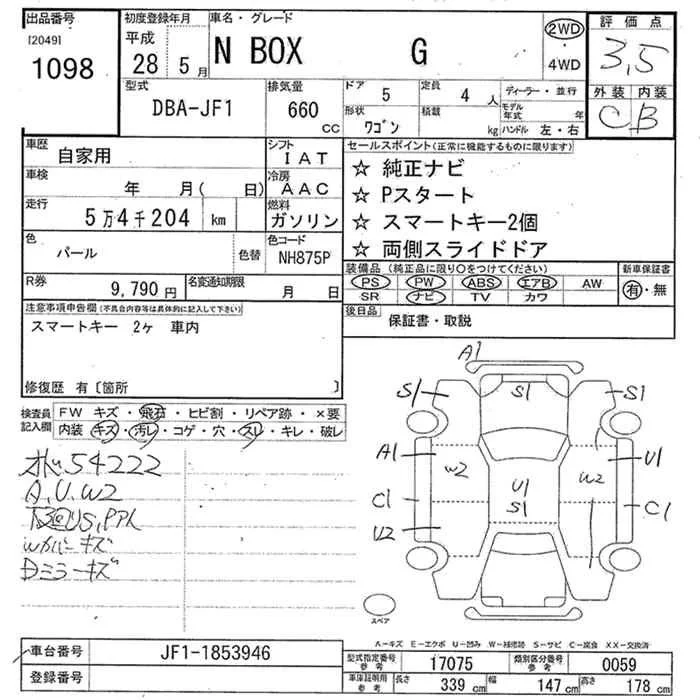 出品番号 初度登録年月 車名・グレード 評価点
[2049] 平成 N BOX G 2WD
1098 28 5月 4WD 3,5
型式 排気量 ドア 5 定員 4人 ディーラー・並行 外装 内装
DBA-JF1 660 CC 形状 ワゴン 積載 kg モデル年式 年 C B
ハンドル 左・右
車歴 自家用 シフト IAT セールスポイント(正常に機能するものに限ります)
車検 年 月( 日) 冷房 AAC ☆ 純正ナビ
走行 5万4千204 km 燃料 ガソリン ☆ Pスタート
☆ スマートキー2個
色 パール 色替 色コード NH875P ☆ 両側スライドドア
R券 9,790円 名変通知期限 月 日 装備品(純正品に限り○をつけてください) 新車保証書
PS PW ABS エアB AW 有・無
SR ナビ TV カワ
注意事項申告欄(不具合内容等は具体的に記入して下さい) 後日品 保証書・取説
スマートキー 2ヶ 車内
修復歴 有〔箇所 〕
検査員記入欄 FW キズ・飛石・ヒビ割・リペア跡・×要
内装 キズ・汚レ・コゲ・穴・スレ・キレ・破レ
54222
A,U,W2
キズ
Dミラーキズ
A1
S1 S1 S1
A1 W2 W2 U1
U1
C1 S1 C1
U2
スペア
A-キズ E-エクボ U-凹み W-補修跡 S-サビ C-腐食 XX-交換済
車台番号 JF1-1853946 型式指定番号 参考 17075 類別区分番号 参考 0059
登録番号 車庫証明用 参考 長さ 339 cm 幅 147 cm 高さ 178 cm